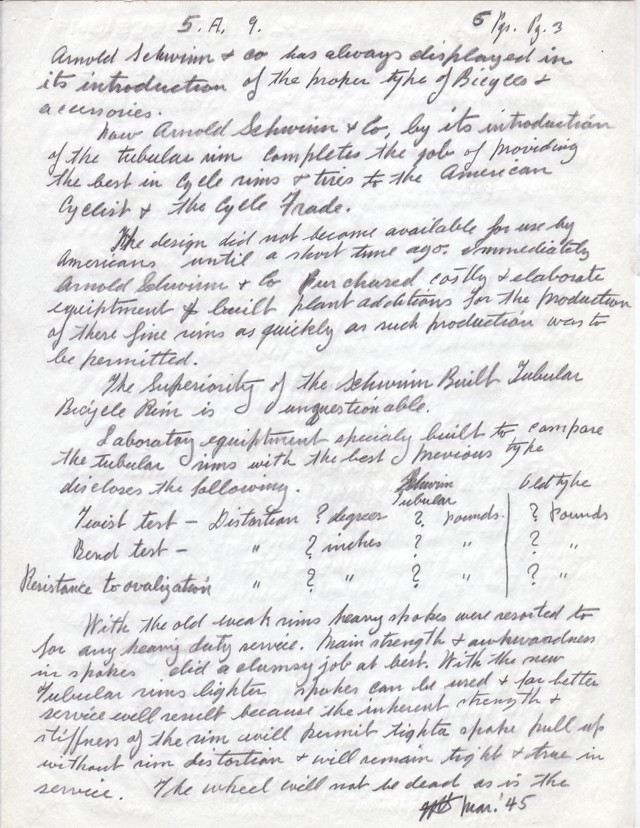 5. A. 9. 6 Pgs. Pg. 3
Arnold Schwinn & Co has always displayed in
its introduction of the proper type of Bicycles &
accessories.
Now Arnold Schwinn & Co, by its introduction
of the tubular rim completes the job of providing
the best in Cycle rims & tires to the American
Cyclist & the Cycle Trade.
The design did not become available for use by
Americans until a short time ago. Immediately
Arnold Schwinn & Co Purchased costly & elaborate
equiptment & built plant additions for the production
of these fine rims as quickly as such production was to
be permitted.
The Superiority of the Schwinn Built Tubular
Bicycle Rim is unquestionable.
Laboratory equiptment specialy built to compare
the tubular rims with the best previous type
discloses the following. Schwinn Tubular Old type
Twist test – Distortion ? degrees ? Pounds. ? Pounds
Bend test – " ? inches ? " ? "
Resistance to ovalization " ? " ? " ? "
With the old weak rims heavy spokes were resorted to
for any heavy duty service. Main strength & awkwardness
in spokes did a clumsy job at best. With the new
Tubular rims lighter spokes can be used & far better
service will result because the inherent strength &
stiffness of the rim will permit tighter spoke pull up
without rim distortion & will remain tight & true in
service. The wheel will not be dead as is the
Mar. '45